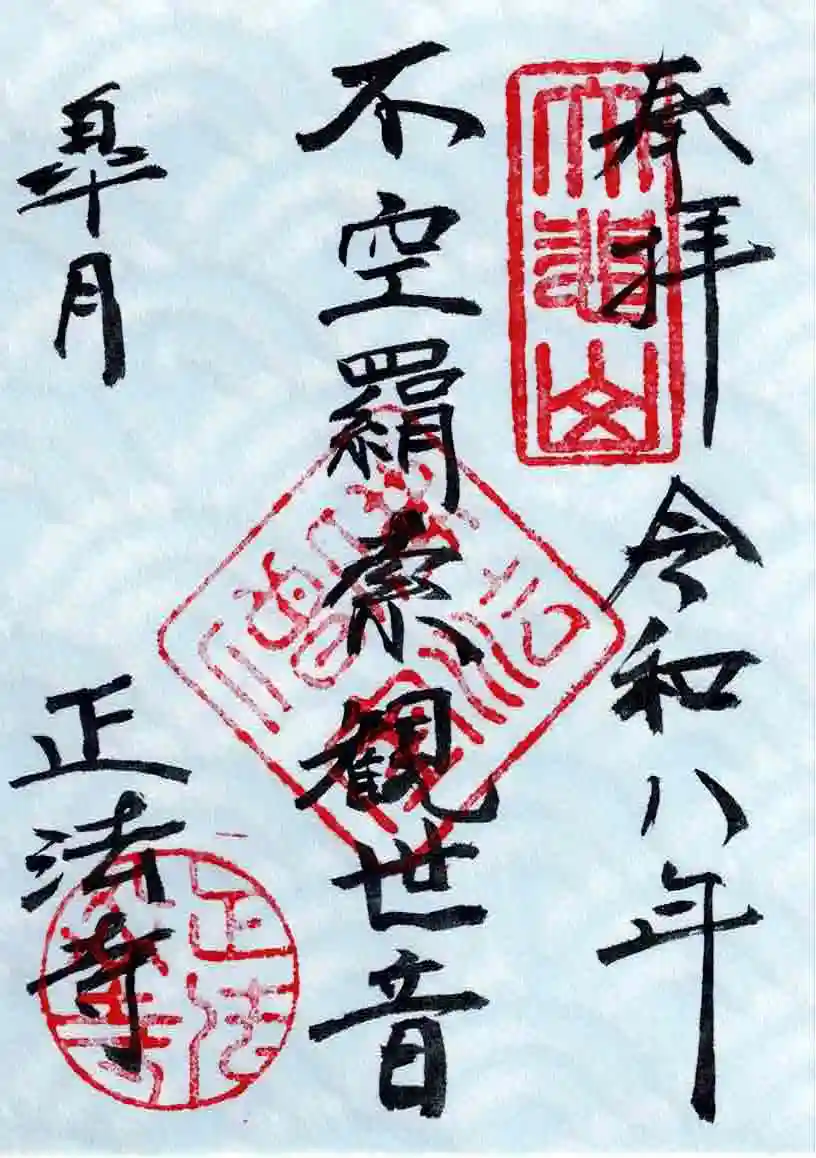 奉拝 令和八年
大悲山
不空羂索観世音
皐月 正法寺
正法寺